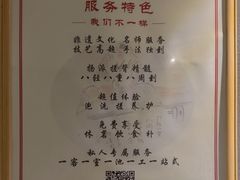 服务特色
我们不一样
非遗文化 名师服务
技艺高超 手法独到
杨派揉背精髓
八轻八重八周到
超值体验
泡洗搓养护
免费享受
休茗饮食补
私人专属服务
一客一室一池一工一站式